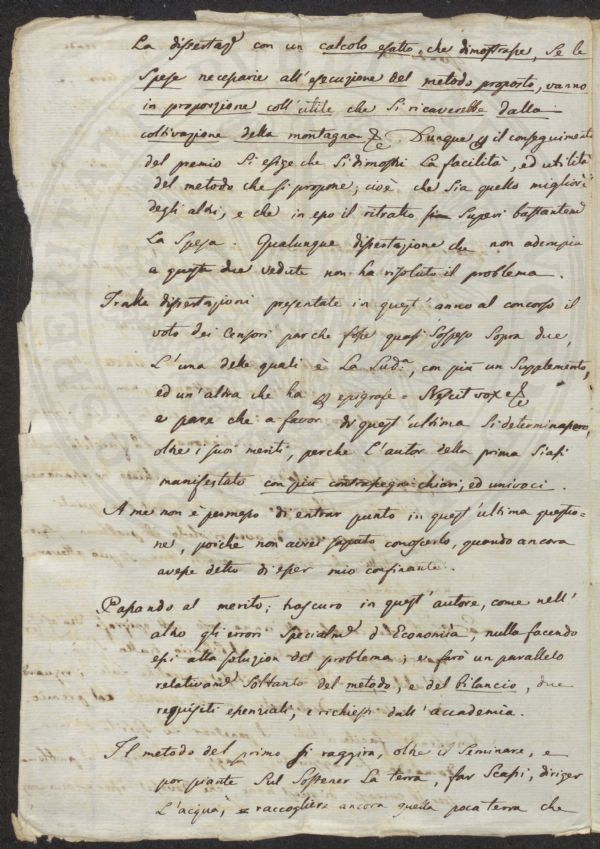 La dissertaz.e con un calcolo esatto, che dimostrasse, Se le
Spese necessarie all'esecuzione del metodo proposto, vanno
in proporzione coll'utile che Si ricaverebbe dalla
coltivazione della montagna &c. Dunque p il conseguimento
del premio Si esige che Si dimostri La facilità, ed utilità
del metodo che Si propone; cioè che Sia quello migliore
degli altri, e che in esso il ritratto Superi bastantem.e
La Spesa. Qualunque dissertazione che non adempia
a queste due vedute non ha risoluto il problema.
Tralle dissertazioni presentate in quest'anno al concorso il
voto dei Censori par che fosse quasi Sospeso Sopra due,
L'una delle quali è La Sud.a, con più un Supplemento,
ed un'altra che ha p epigrafe = Nescit vox &c
e pare che a favor di quest'ultima Si determinassero,
oltre i suoi meriti, perche L'autor della prima Siasi
manifestato con più contrassegni chiari, ed univoci.
A me non è permesso di entrar punto in quest'ultima questio=
ne, poichè non avrei saputo conoscerlo, quando ancora
avesse detto di esser mio confinante.
Passando al merito; trascuro in quest'autore, come nell'
altro gli errori Specialm.e d'Economia, nulla facendo
essi alla soluzion del problema; e farò un parallelo
relativam.e Soltanto del metodo, e del bilancio, due
requisiti essenziali, e richiesti dall'accademia.
Il metodo del primo Si raggira, oltre il Seminare, e
por piante Sul Sostener La terra, far Scassi, diriger
L'acqua, raccogliere ancora quella poca terra che